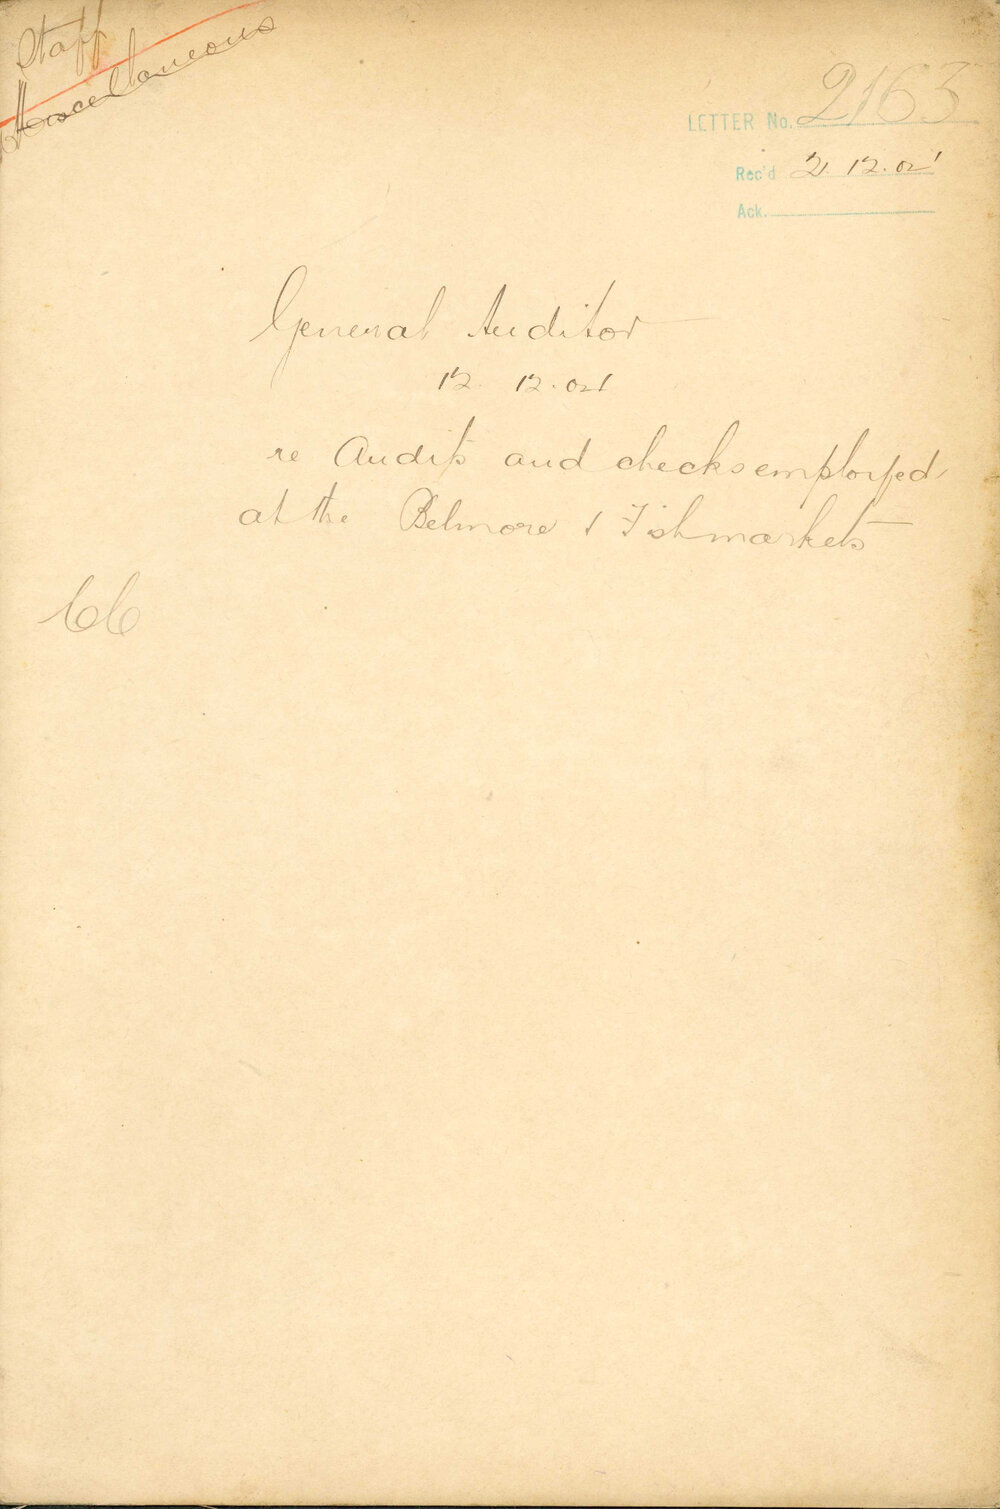 Staff
Miscellaneous
LETTER No. 2163
Rec'd 2. 12. 02
Ack.
General Auditor
12. 12. 02
re Audits and checks employed
at the Belmore & Fishmarkets